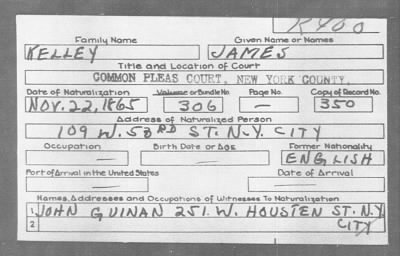 K400
Family Name Given Name or Names
KELLEY JAMES
Title and Location of Court
COMMON PLEAS COURT, NEW YORK COUNTY.
Date of Naturalization Volume or Bundle No. Page No. Copy of Record No.
NOV. 22, 1865 306 — 350
Address of Naturalized Person
109 W. 53RD ST. N.Y. CITY
Occupation Birth Date or Age Former Nationality
— — ENGLISH
Port of Arrival in the United States Date of Arrival
— —
Names, Addresses and Occupations of Witnesses To Naturalization
1 JOHN GUINAN 251. W. HOUSTEN ST. N.Y.
2 CITY